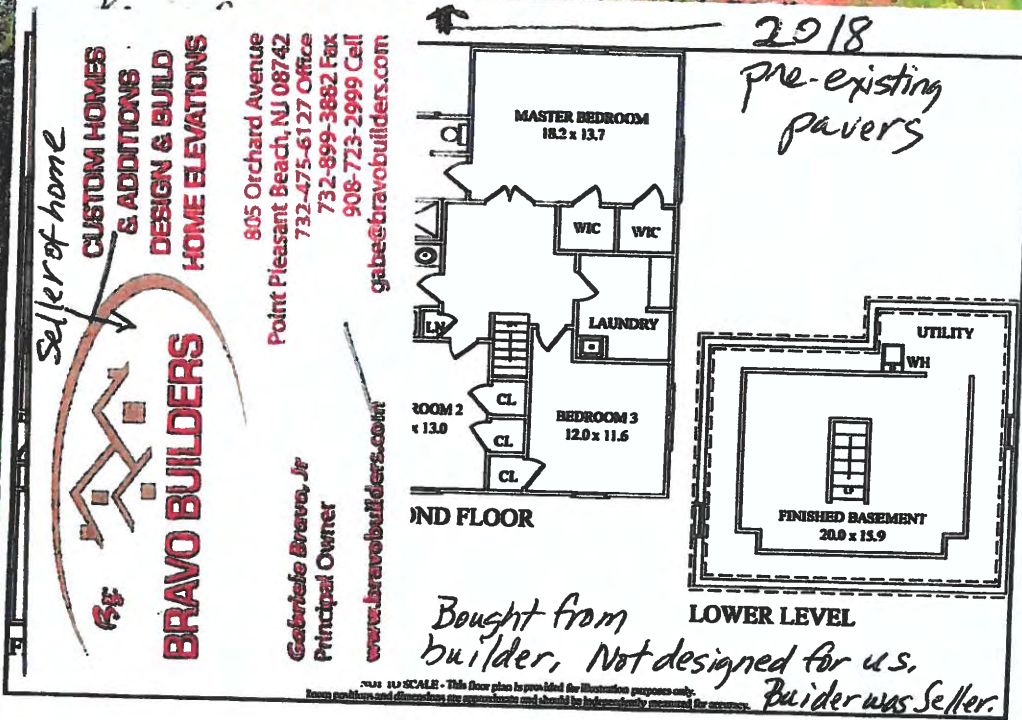 2018
pre-existing
pavers
Seller of home
CUSTOM HOMES
& ADDITIONS
DESIGN & BUILD
HOME ELEVATIONS
BRAVO BUILDERS
805 Orchard Avenue
Point Pleasant Beach, NJ 08742
732-475-6127 Office
732-899-3882 Fax
908-723-2999 Cell
gabe@bravobuilders.com
Gabriele Bravo, Jr
Principal Owner
www.bravobuilders.com
MASTER BEDROOM
18.2 x 13.7
WIC
WIC
LAUNDRY
LN
CL
CL
CL
ROOM 2
x 13.0
BEDROOM 3
12.0 x 11.6
OND FLOOR
UTILITY
WH
UP
FINISHED BASEMENT
20.0 x 15.9
LOWER LEVEL
F
Bought from
builder, Not designed for us.
Buider was Seller.
NOT TO SCALE - This floor plan is provided for illustration purposes only.
Room positions and dimensions are approximate and should be independently measured for accuracy.